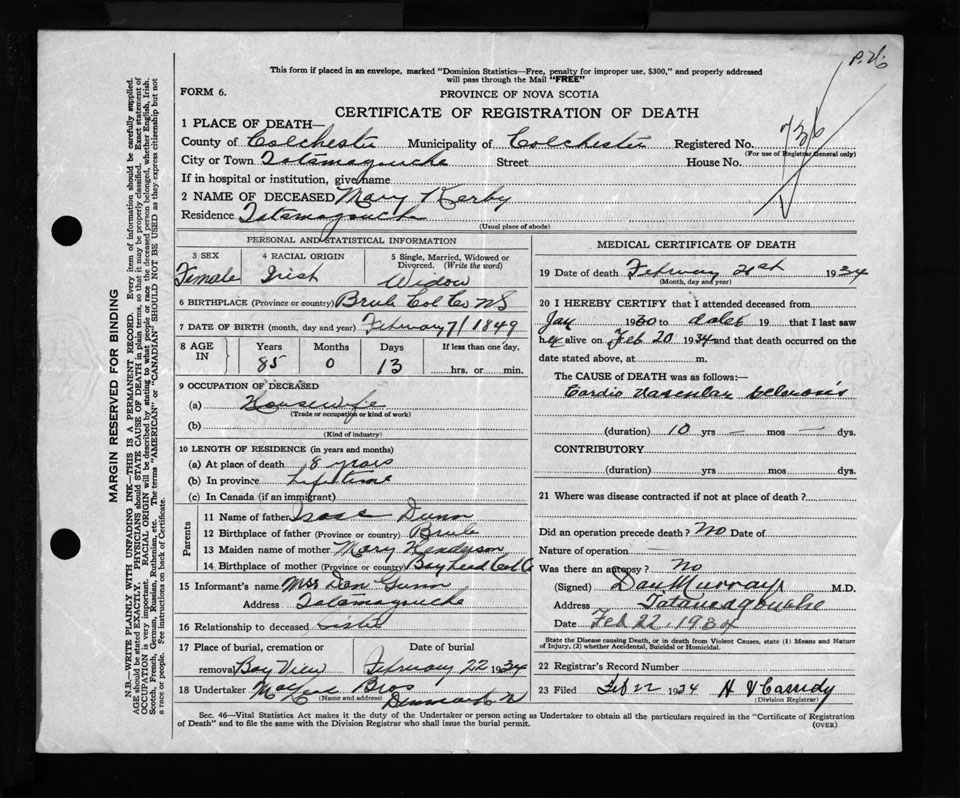 P.H.
This form if placed in an envelope, marked "Dominion Statistics—Free, penalty for improper use, $300," and properly addressed
will pass through the Mail "FREE"
FORM 6.
PROVINCE OF NOVA SCOTIA
CERTIFICATE OF REGISTRATION OF DEATH
736
1 PLACE OF DEATH—
County of Colchester Municipality of Colchester Registered No.
(For use of Registrar General only)
City or Town Tatamagouche Street House No.
If in hospital or institution, give name
2 NAME OF DECEASED Mary Kerby
Residence Tatamagouche
(Usual place of abode)
PERSONAL AND STATISTICAL INFORMATION
3 SEX 4 RACIAL ORIGIN 5 Single, Married, Widowed or
Divorced. (Write the word)
Female Irish Widow
6 BIRTHPLACE (Province or country) Brule Col Co NS
7 DATE OF BIRTH (month, day and year) February 7/1849
8 AGE IN Years Months Days If less than one day.
85 0 13 hrs. or min.
9 OCCUPATION OF DECEASED
(a) Housewife
(Trade or occupation or kind of work)
(b)
(Kind of industry)
10 LENGTH OF RESIDENCE (in years and months)
(a) At place of death 8 years
(b) In province Lifetime
(c) In Canada (if an immigrant)
Parents
11 Name of father Isaac Dunn
12 Birthplace of father (Province or country) Brule
13 Maiden name of mother Mary
14 Birthplace of mother (Province or country) Bay head Col Co
15 Informant's name Mrs Dan Gunn
Address Tatamagouche
16 Relationship to deceased Sister
17 Place of burial, cremation or Date of burial
removal Bay View February 22 1934
18 Undertaker Bros
(Name and address) Denmark N
MEDICAL CERTIFICATE OF DEATH
19 Date of death February 21st 1934
(Month, day and year)
20 I HEREBY CERTIFY that I attended deceased from
Jay 1930 to date 19 that I last saw
her alive on Feb 20 1934 and that death occurred on the
date stated above, at m.
The CAUSE OF DEATH was as follows:—
Cardio Vascular Sclerosis
(duration) 10 yrs — mos — dys.
CONTRIBUTORY
(duration) yrs mos dys.
21 Where was disease contracted if not at place of death?
Did an operation precede death? No Date of
Nature of operation —
Was there an autopsy? No
(Signed) Dan Murray M.D.
Address Tatamagouche
Date Feb 22, 1934
State the Disease causing Death, or in death from Violent Causes, state (1) Means and Nature
of Injury, (2) whether Accidental, Suicidal or Homicidal.
22 Registrar's Record Number
23 Filed Feb 22 1934 H V Cassidy
(Division Registrar)
Sec. 46—Vital Statistics Act makes it the duty of the Undertaker or person acting as Undertaker to obtain all the particulars required in the "Certificate of Registration
of Death" and to file the same with the Division Registrar who shall issue the burial permit.
(OVER)
MARGIN RESERVED FOR BINDING
N.B.—WRITE PLAINLY WITH UNFADING INK—THIS IS A PERMANENT RECORD. Every item of information should be carefully supplied.
AGE should be stated EXACTLY. PHYSICIANS should STATE CAUSE OF DEATH in plain terms, so that it may be properly classified. Exact statement of
OCCUPATION is very important. RACIAL ORIGIN will be described by stating to what people or race the deceased person belonged, whether English, Irish,
Scotch, French, German, Russian, Ruthenian, etc. The terms "AMERICAN" or "CANADIAN" SHOULD NOT BE USED as they express citizenship but not
a race or people. Fee instructions on back of Certificate.